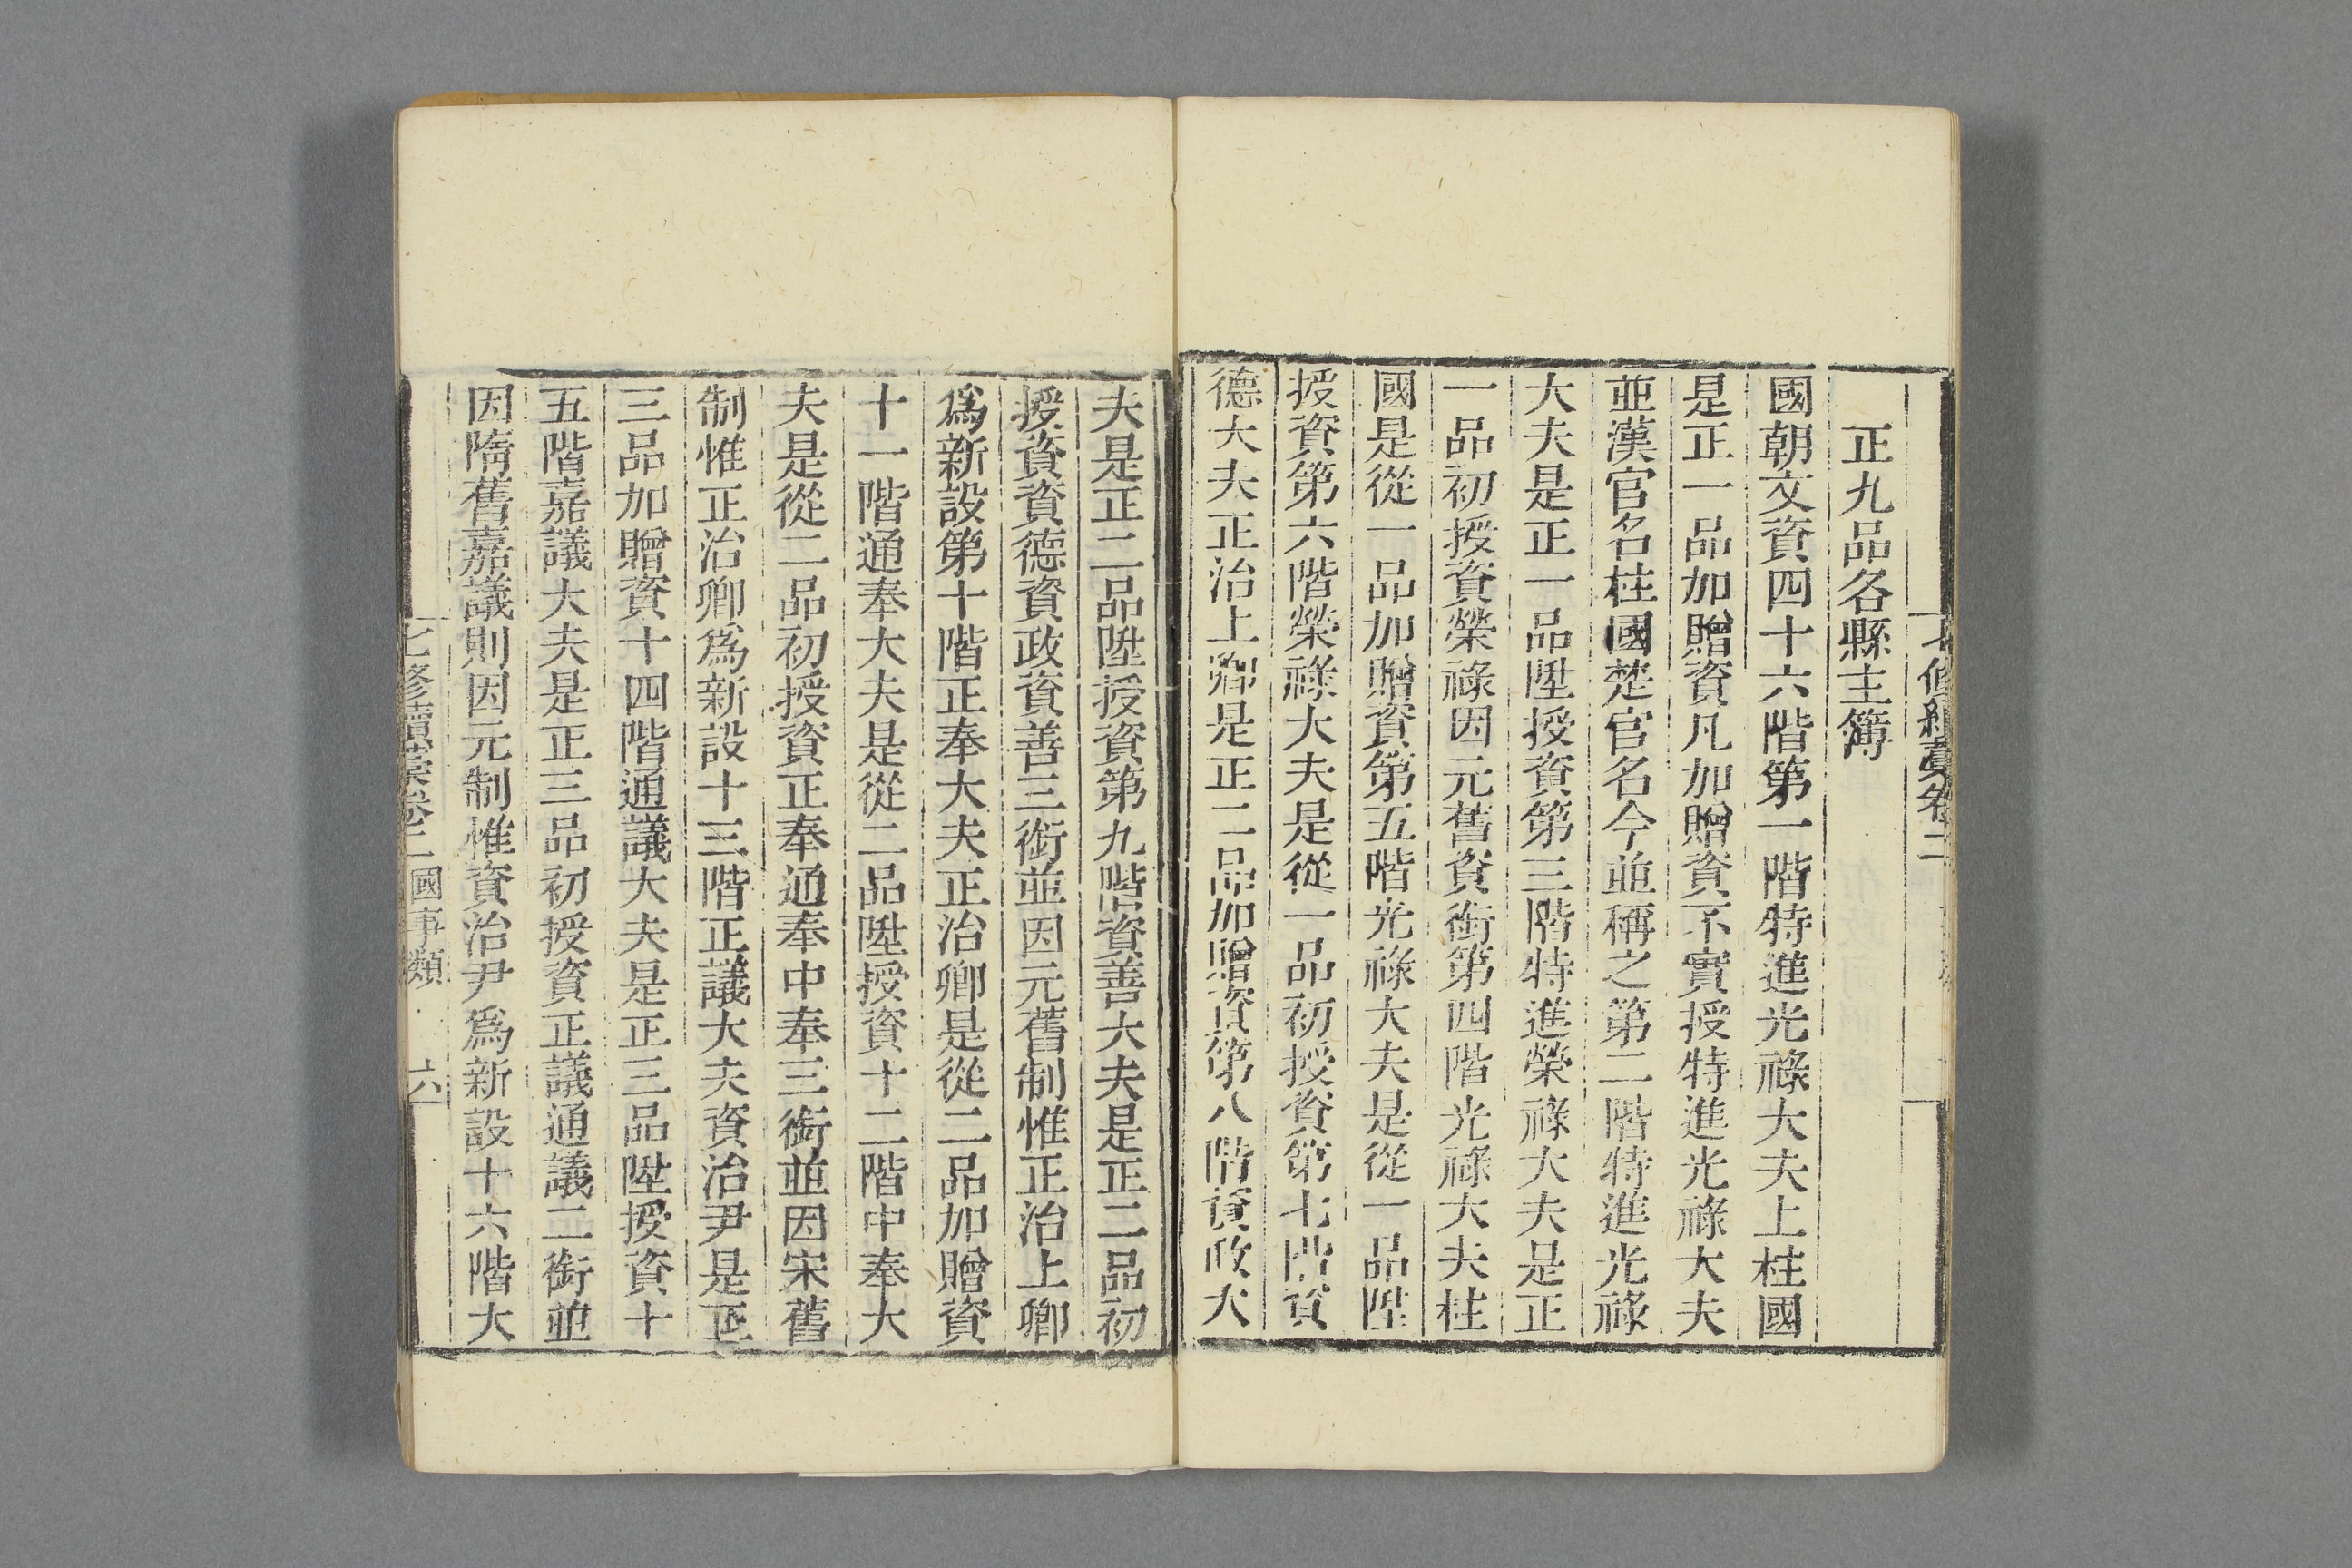 七修續藁卷二
正九品各縣主簿
國朝文資四十六階第一階特進光祿大夫上柱國
是正一品加贈資凡加贈資不實授特進光祿大夫
並漢官名柱國楚官名今並稱之第二階特進光祿
大夫是正一品陞授資第三階特進榮祿大夫是正
一品初授資榮祿因元舊資銜第四階光祿大夫柱
國是從一品加贈資第五階光祿大夫是從一品陞
授資第六階榮祿大夫是從一品初授資第七階資
德大夫正治上卿是正二品加贈資第八階資政大
夫是正二品陞授資第九階資善大夫是正二品初
授資資德資政資善三銜並因元舊制惟正治上卿
爲新設第十階正奉大夫正治卿是從二品加贈資
十一階通奉大夫是從二品陞授資十二階中奉大
夫是從二品初授資正奉通奉中奉三銜並因宋舊
制惟正治卿爲新設十三階正議大夫資治尹是正
三品加贈資十四階通議大夫是正三品陞授資十
五階嘉議大夫是正三品初授資正議通議二銜並
因隋舊嘉議則因元制惟資治尹爲新設十六階大
七修續藁卷二 國事類 六